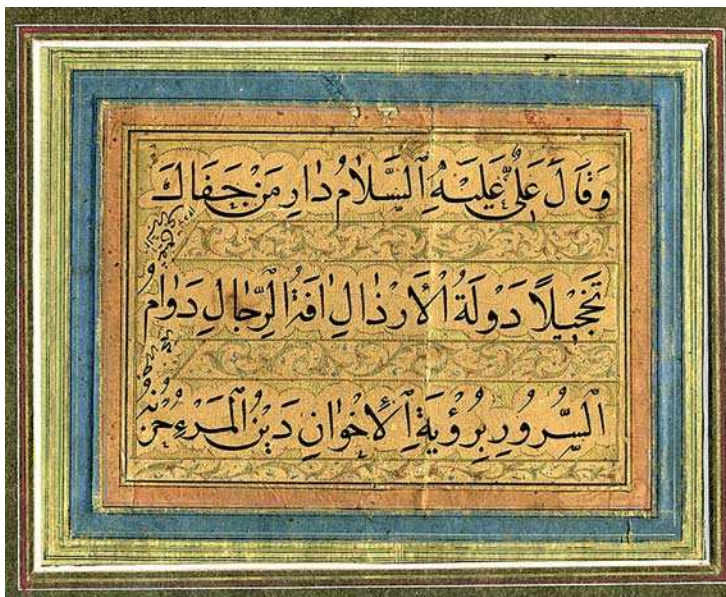 وَقَالَ عَلِيٌّ عَلَيْهِ السَّلَامُ دَارِ مَنْ جَفَاكَ
تَخْجِيلًا دَوْلَةُ الْأَرْذَالِ اٰفَةُ الرِّجَالِ دَوَامُ
السُّرُورِ بِرُؤْيَةِ الْإِخْوَانِ دَيْنُ الْمَرْءِ حُزْنُهُ